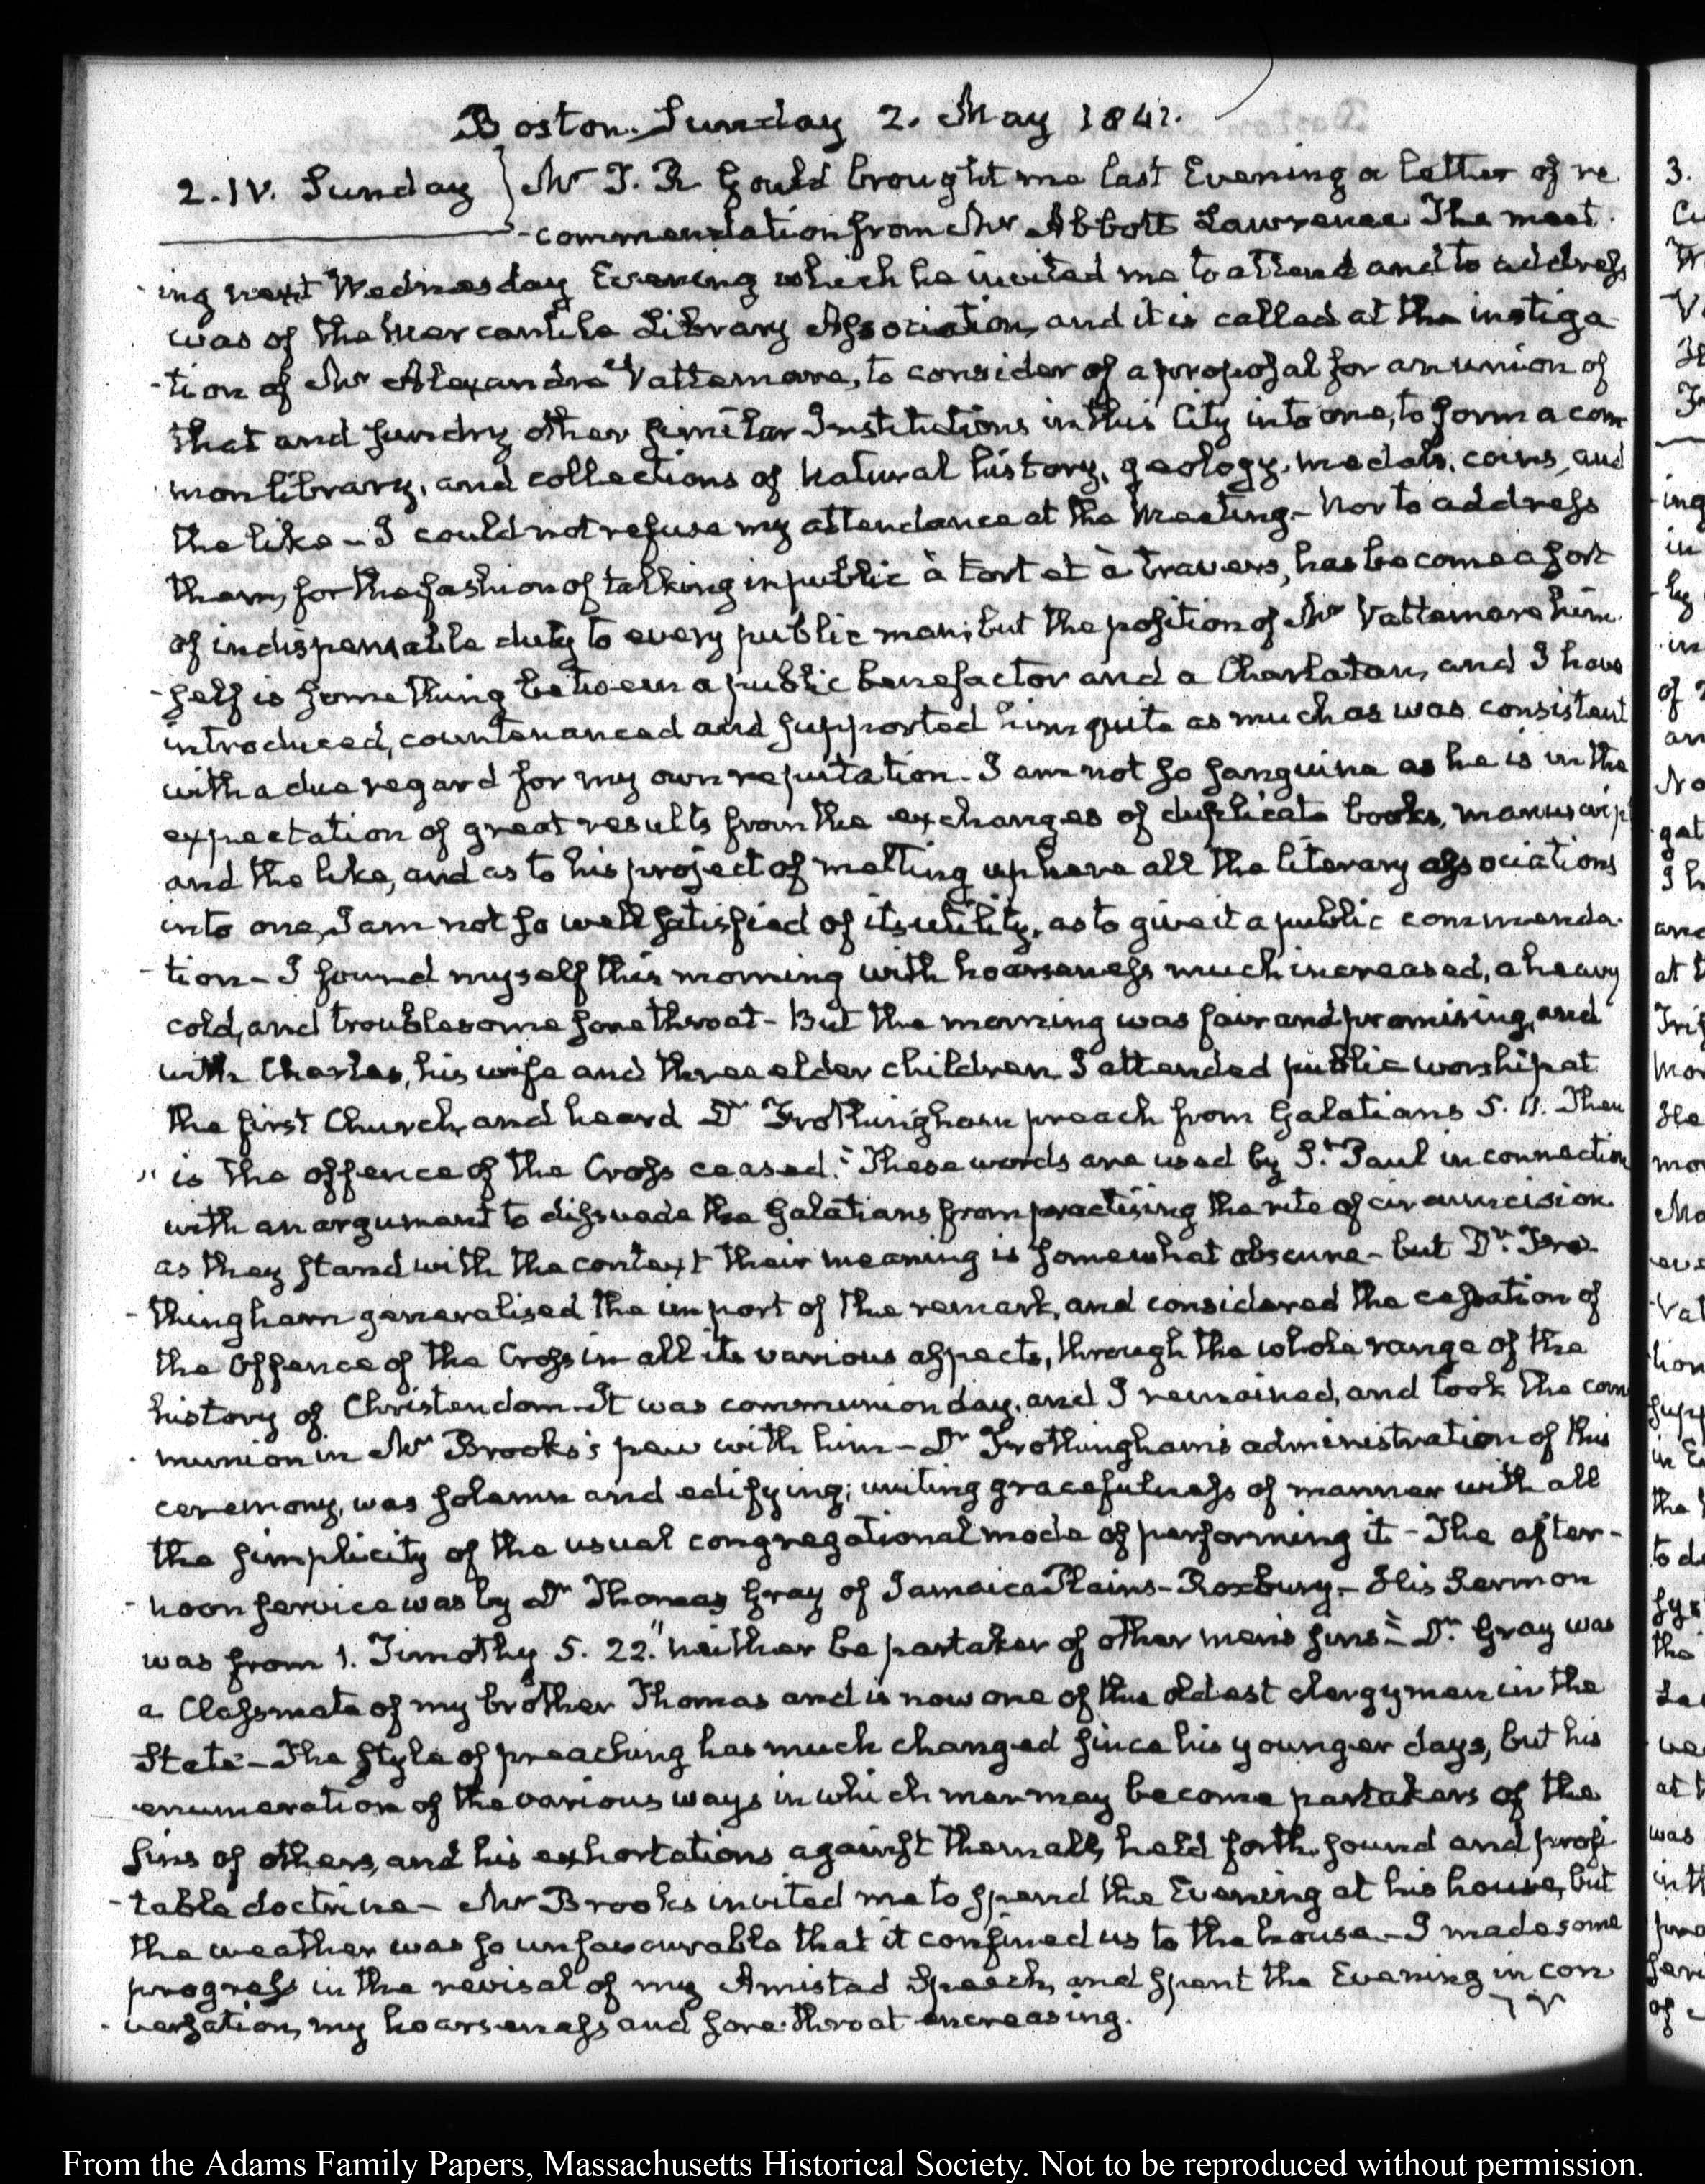 Boston. Sunday 2. May 1841.
2. IV. Sunday } Mr T. R. Gould brought me last Evening a letter of re
-commendation from Mr Abbott Lawrence. The meet-
-ing next Wednesday Evening which he invited me to attend and to address
was of the Mercantile Library Association, and it is called at the instiga
-tion of Mr Alexandre Vattemare, to consider of a proposal for an union of
that and sundry other similar Institutions in this City into one, to form a com
mon library, and collections of natural history, geology, medals, coins, and
the like – I could not refuse my attendance at the Meeting – Nor to address
them, for the fashion of talking in public à tort et à travers, has become a sort
of indispensable duty to every public man; but the position of Mr Vattemare him
-self is something between a public benefactor and a Charlatan, and I have
introduced, countenanced and supported him quite as much as was consistent
with a due regard for my own reputation. I am not so sanguine as he is in the
expectation of great results from the exchanges of duplicate books, manuscrip
and the like, and as to his project of melting up here all the literary associations
into one, I am not so well satisfied of its utility, as to give it a public commenda-
-tion – I found myself this morning with hoarseness much increased, a heavy
cold, and troublesome sore throat – But the morning was fair and promising, and
with Charles, his wife and three elder children I attended public worship at
the first Church, and heard Dr Frothingham preach from Galatians 5. 11. Then
" is the offence of the Cross ceased." These words are used by St. Paul in connection
with an argument to dissuade the Galatians from practising the rite of circumcision
as they stand with the context their meaning is somewhat obscure – but Dr. Fro-
-thingham generalised the import of the remark, and considered the cessation of
the Offence of the Cross in all its various aspects, through the whole range of the
history of Christendom. It was communion day, and I remained, and took the com
-munion in Mr Brooks's pew with him – Dr Frothingham's administration of this
ceremony, was solemn and edifying; uniting gracefulness of manner with all
the simplicity of the usual congregational mode of performing it – The after-
-noon service was by Dr Thomas Gray of Jamaica Plains – Roxbury. – His Sermon
was from 1. Timothy 5. 22. "neither be partaker of other men's sins" – Dr. Gray was
a Classmate of my brother Thomas and is now one of the oldest clergymen in the
State – The style of preaching has much changed since his younger days, but his
enumeration of the various ways in which men may become partakers of the
sins of others, and his exhortations against them all, held forth sound and profi
-table doctrine – Mr Brooks invited me to spend the Evening at his house, but
the weather was so unfavourable that it confined us to the house – I made some
progress in the revisal of my Amistad Speech, and spent the Evening in con
-versation, my hoarseness and sore throat encreasing.
From the Adams Family Papers, Massachusetts Historical Society. Not to be reproduced without permission.